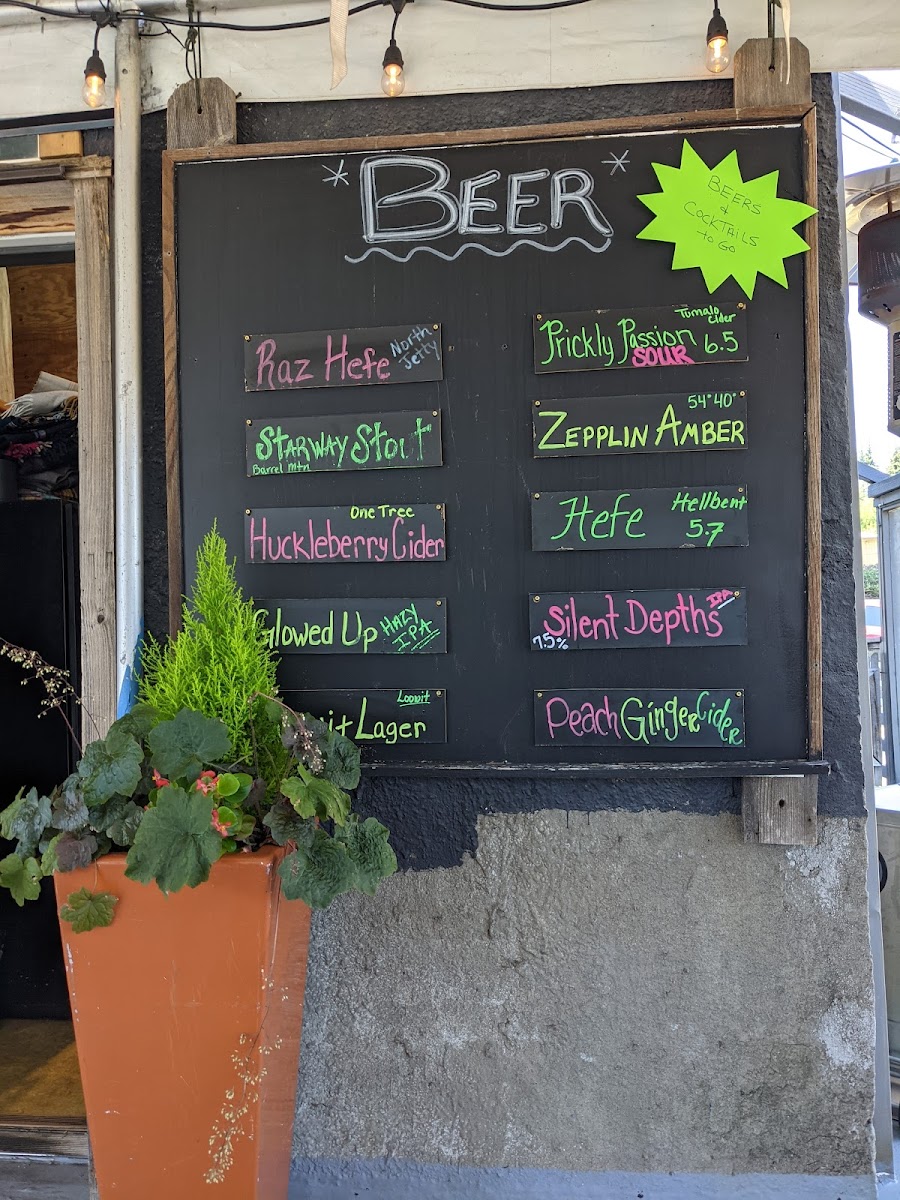 * BEER *
BEERS
&
COCKTAILS
TO GO
Raz Hefe North
Jetty
Starway Stout
Barrel Mtn
One Tree
Huckleberry Cider
Glowed Up HAZY
IPA
Loowit
Lager
Tumalo
Cider
Prickly Passion 6.5
SOUR
54°40°
ZEPPLIN AMBER
Hefe Hellbent
5.7
Silent Depths IPA
7.5%
Peach Ginger Cider